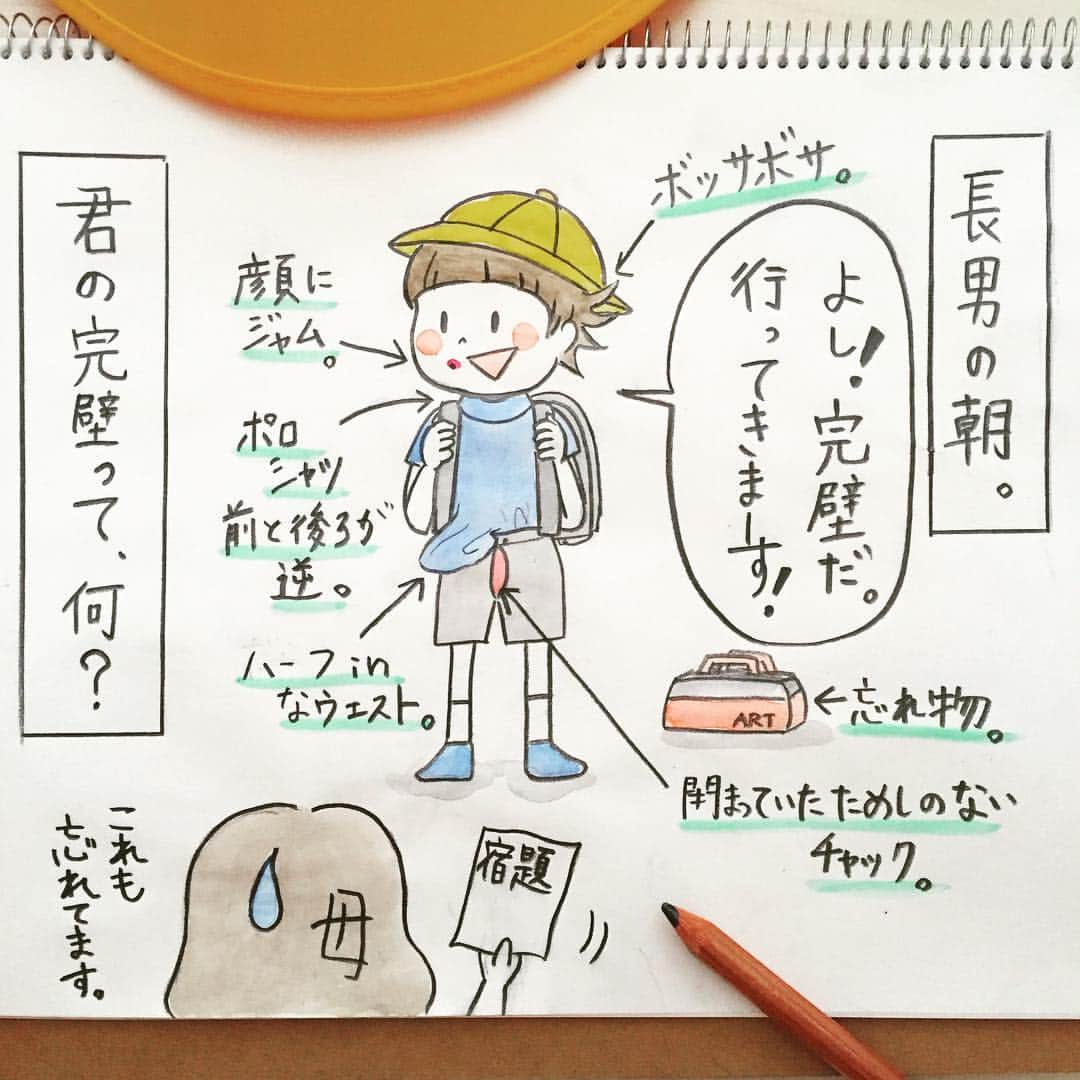 長男の朝。
ボッサボサ。
よし!完璧だ。
行ってきまーす!
顔に
ジャム。
ポロ
シャツ
前と後ろが
逆。
ハーフin
なウエスト。
ART
忘れ物。
閉まっていたためしのない
チャック。
君の完璧って、何?
宿題
母
これも
忘れてます。